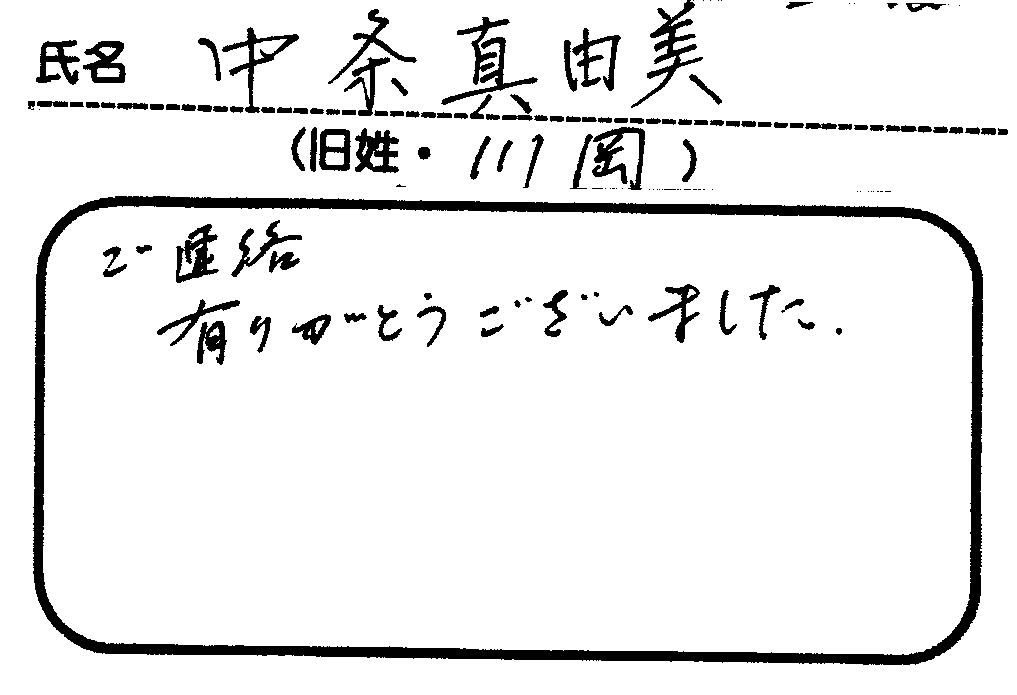 氏名 中条真由美
(旧姓・川岡)
ご連絡
有りがとうございました.